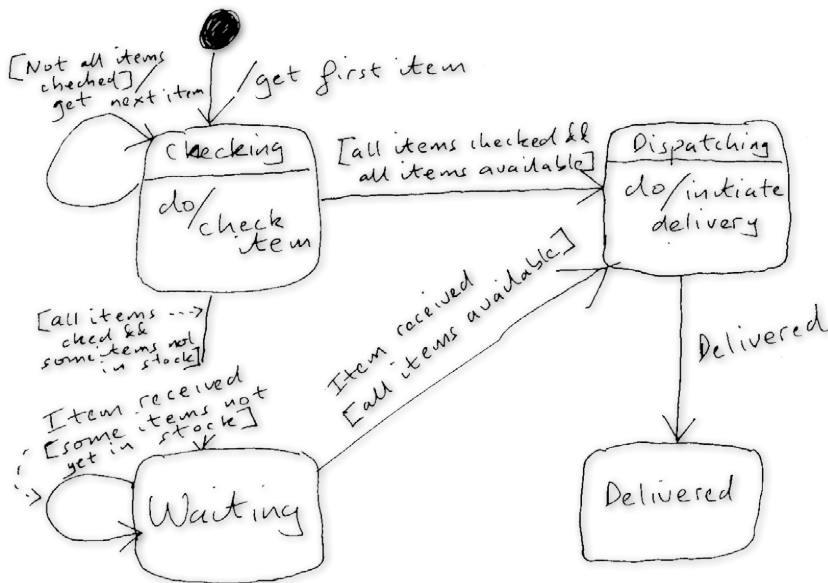 [Not all items
checked]/
get next item
/get first item
Checking
do/
check
item
[all items checked &&
all items available]
Dispatching
do/initiate
delivery
[all items
cked &&
some items not
in stock]
Item received
[some items not
yet in stock]
Item received
[all items available]
Delivered
Waiting
Delivered